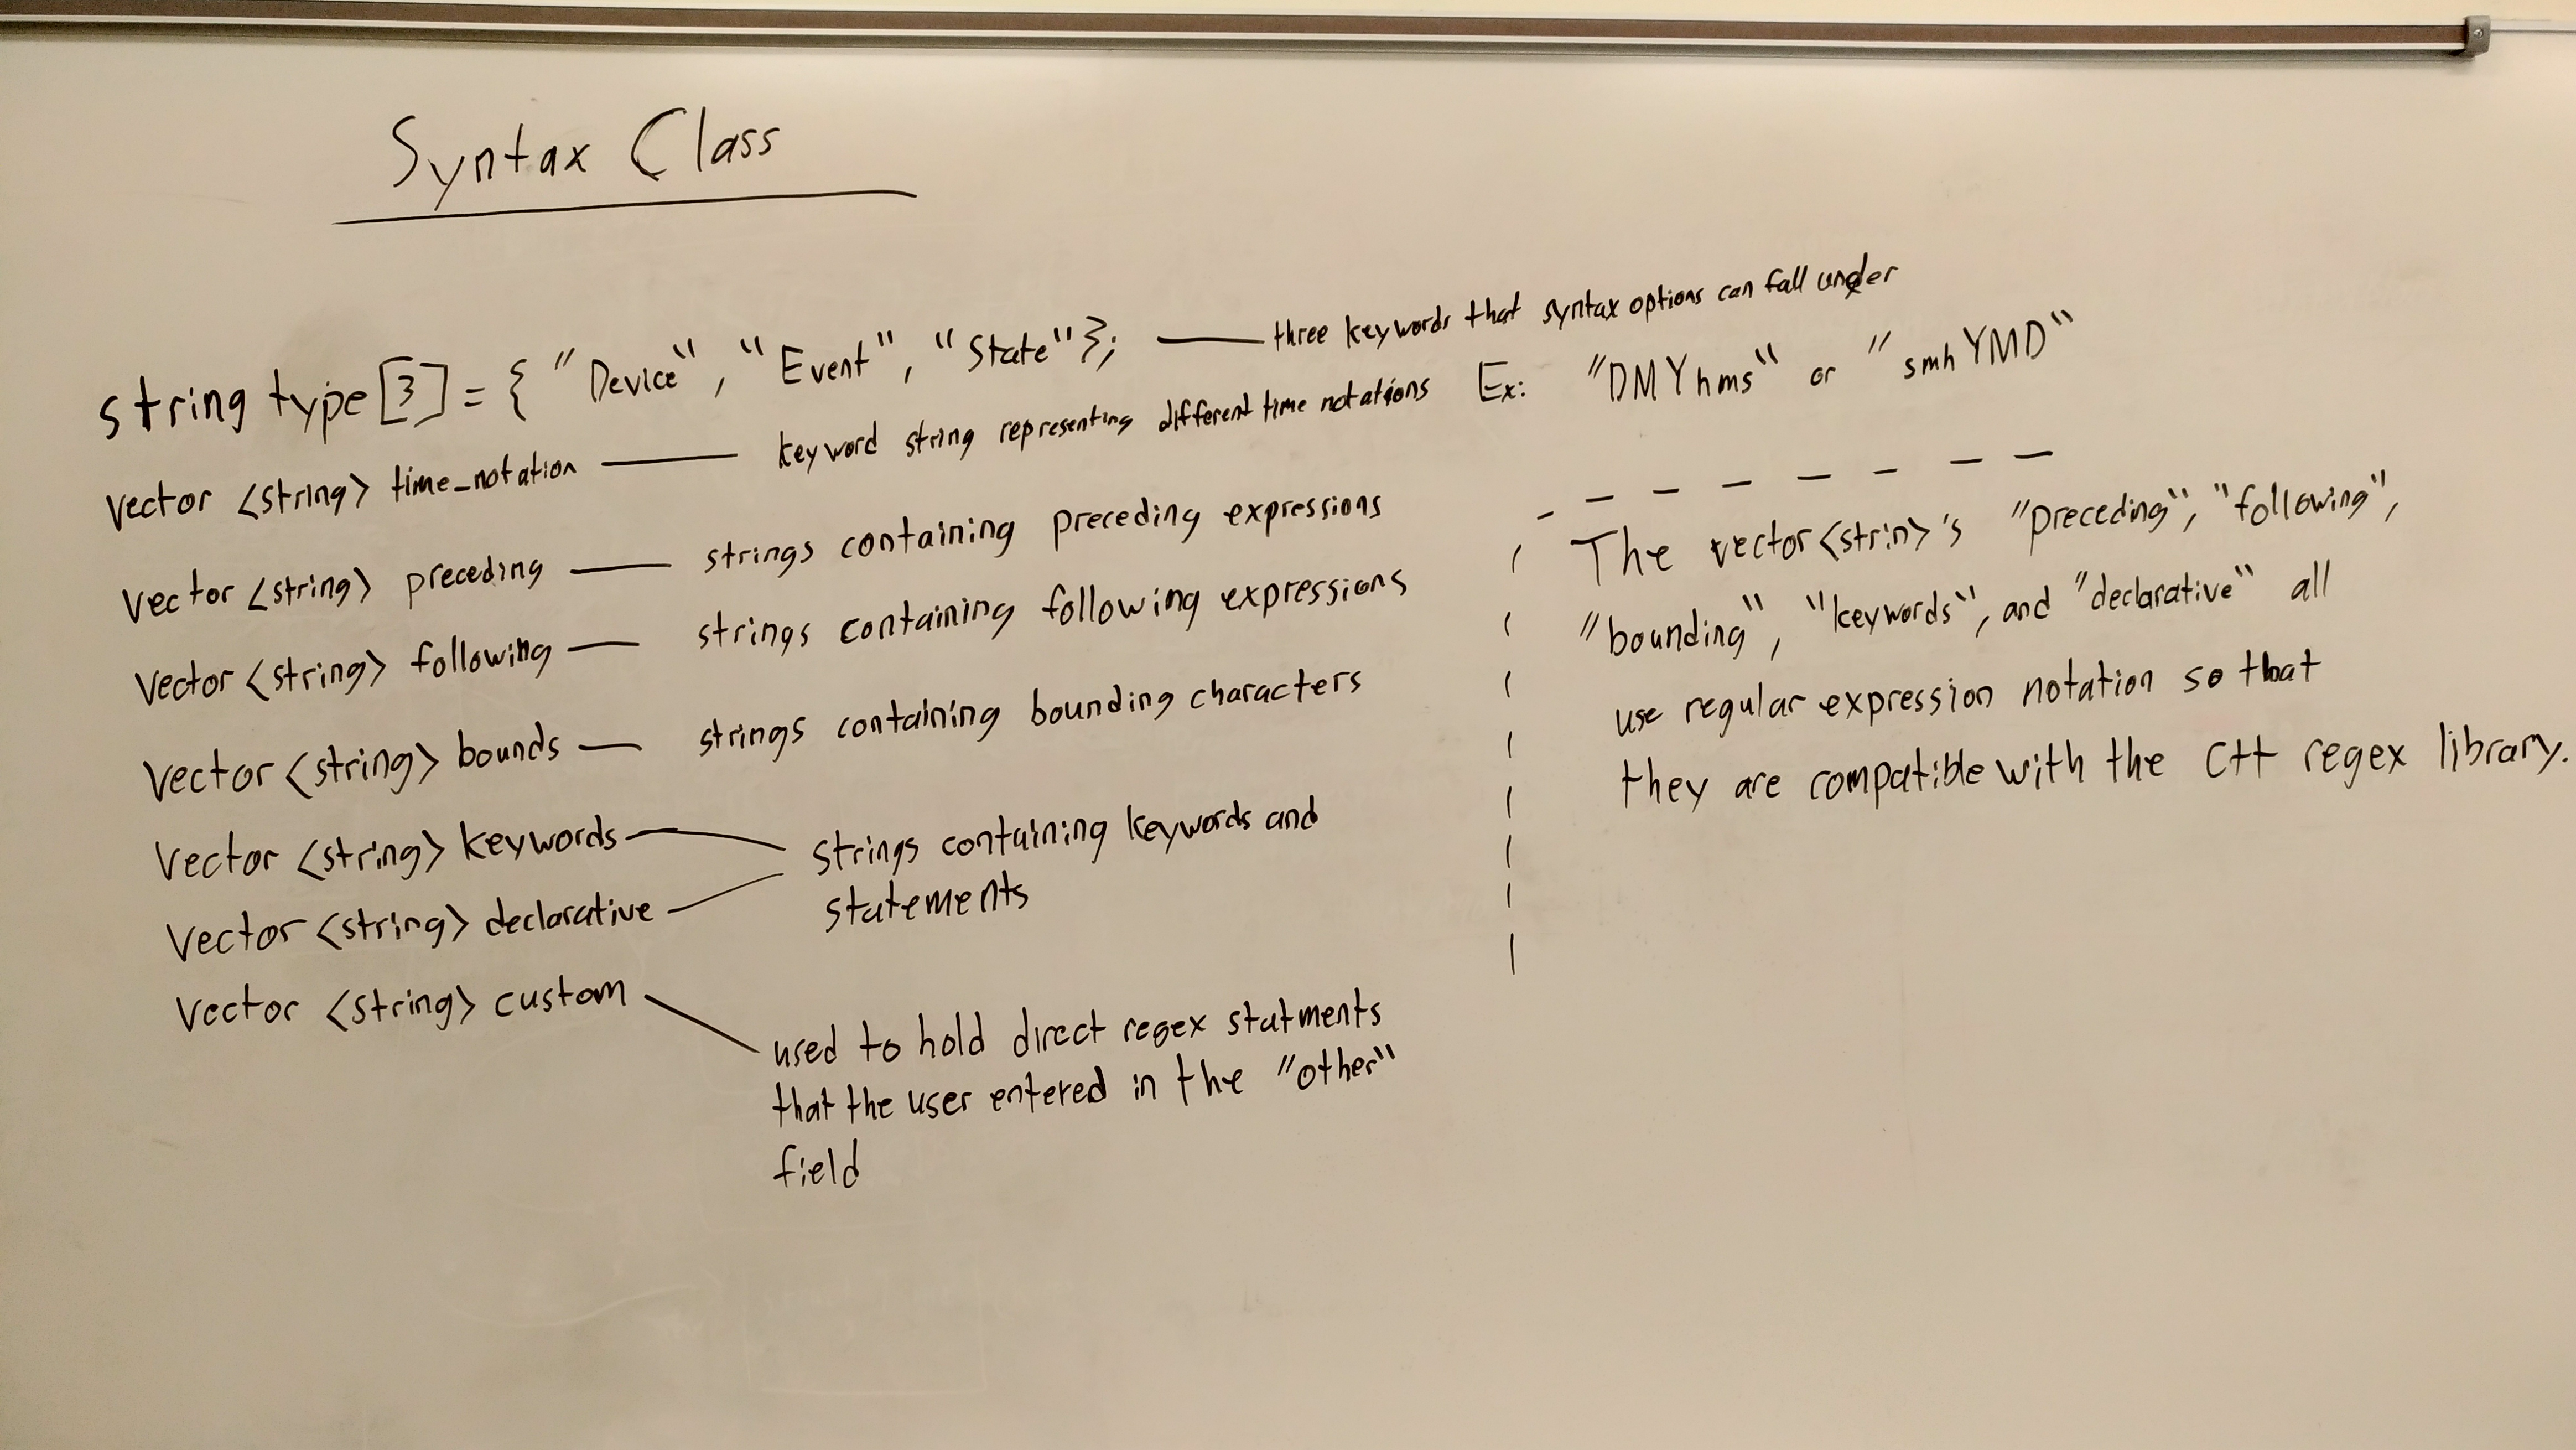 Syntax Class
string type[3] = { "Device", "Event", "State"}; — three keywords that syntax options can fall under
vector <string> time_notation — keyword string representing different time notations Ex: "DMYhms" or "smhYMD"
vector <string> preceding — strings containing preceding expressions
vector <string> following — strings containing following expressions
vector <string> bounds — strings containing bounding characters
vector <string> keywords — strings containing keywords and
vector <string> declarative — statements
vector <string> custom — used to hold direct regex statments
that the user entered in the "other"
field
The vector<strin>'s "preceding", "following",
"bounding", "keywords", and "declarative" all
use regular expression notation so that
they are compatible with the C++ regex library.